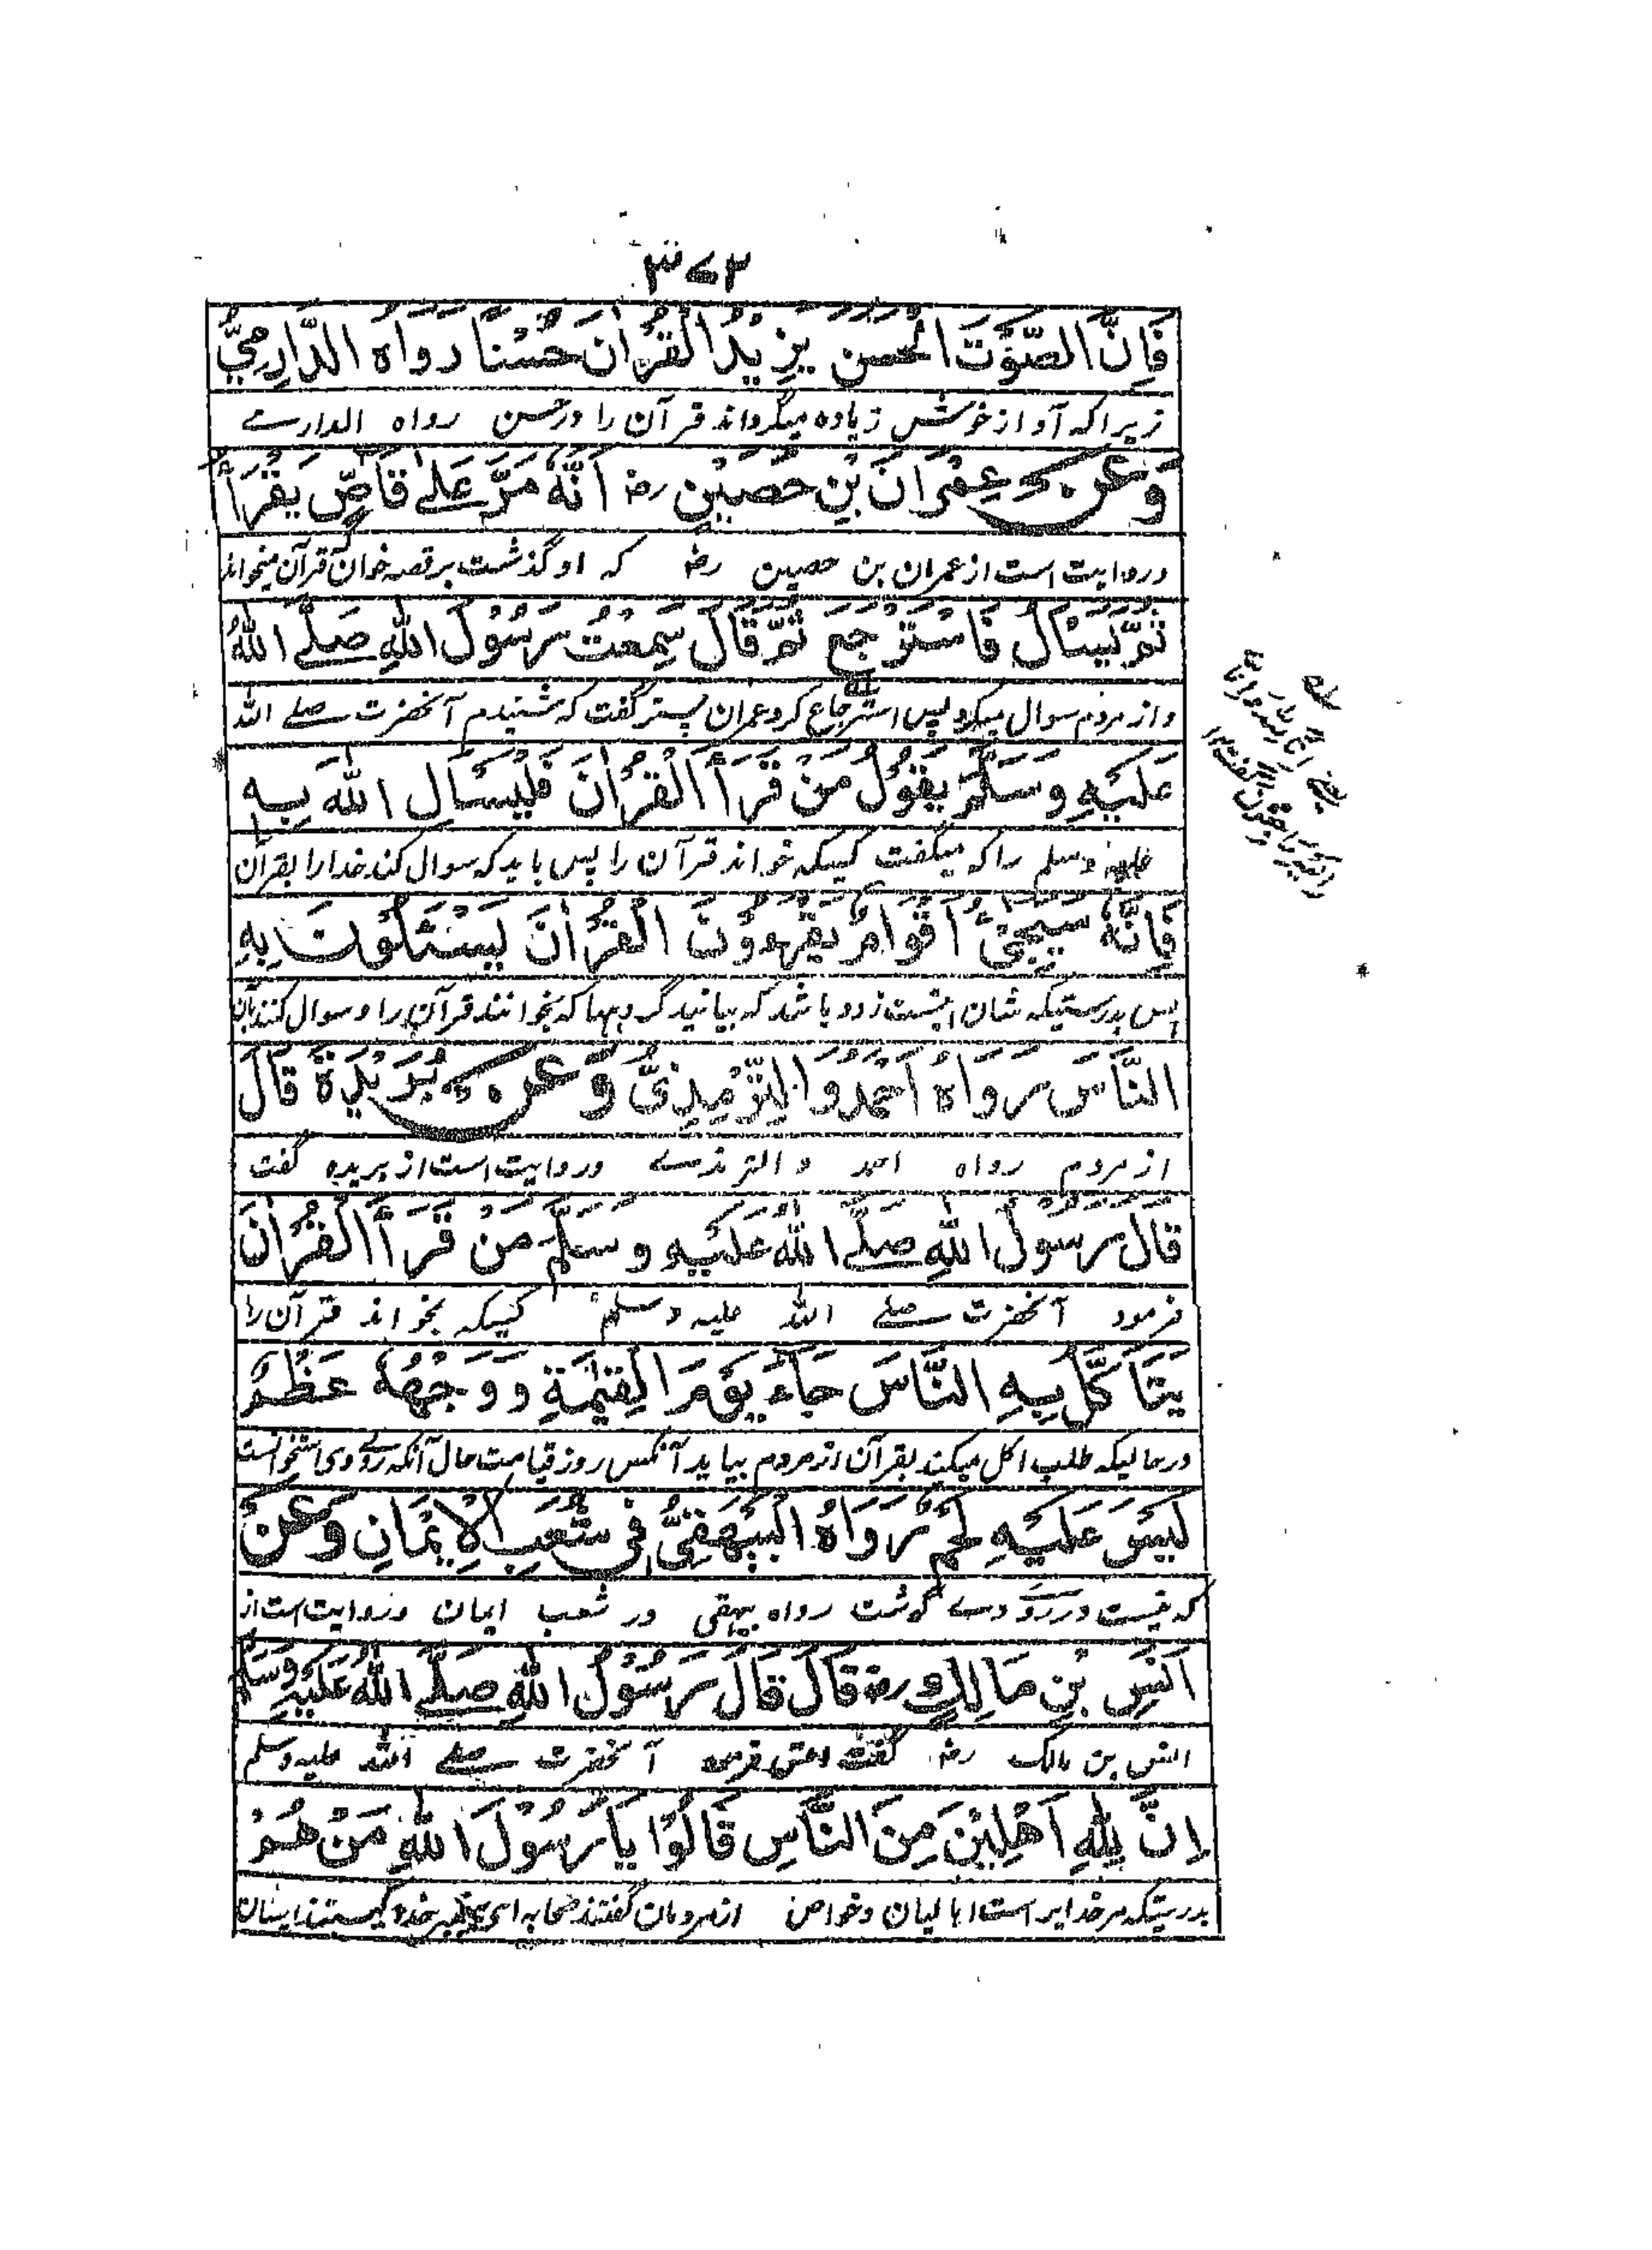 ۳۷۲
فَاِنَّ الصَّوْتَ الْحَسَنَ يَزِيْدُ الْقُرْاٰنَ حُسْنًا رَوَاهُ الدَّارِمِيُّ
زیراکه آواز خوش زیاده میگرداند قرآن را در حسن رواه الدارمے
وَعَنْ عِمْرَانَ بْنِ حُصَيْنٍ رض اَنَّهٗ مَرَّ عَلٰے قَاصٍّ يَقْرَأُ
و روایت است از عمران بن حصین رض که او گذشت بر قصه خوان که قرآن میخواند
ثُمَّ يَسْاَلُ فَاسْتَرْجَعَ ثُمَّ قَالَ سَمِعْتُ رَسُوْلَ اللّٰهِ صَلَّے اللّٰهُ
و از مردم سوال میکرد پس استرجاع کرد عمران پستر گفت که شنیدم آنحضرت صلے الله
عَلَيْهِ وَسَلَّمَ يَقُوْلُ مَنْ قَرَأَ الْقُرْاٰنَ فَلْيَسْاَلِ اللّٰهَ بِهٖ
علیه و سلم را که میگفت کسیکه خواند قرآن را پس باید که سوال کند خدا را بقرآن
فَاِنَّهٗ سَيَجِيْئُ اَقْوَامٌ يَقْرَءُوْنَ الْقُرْاٰنَ يَسْئَلُوْنَ بِهِ
پس بدرستیکه شان اینست زود باشد که بیایند گروهها که بخوانند قرآن را و سوال کنند بآن
النَّاسَ رَوَاهُ اَحْمَدُ وَالتِّرْمِذِيُّ وَعَنْ بُرَيْدَةَ قَالَ
از مردم رواه احمد و الترمذے و روایت است از بریده گفت
قَالَ رَسُوْلُ اللّٰهِ صَلَّے اللّٰهُ عَلَيْهِ وَسَلَّمَ مَنْ قَرَأَ الْقُرْاٰنَ
فرمود آنحضرت صلے الله علیه و سلم کسیکه بخواند قرآن را
يَتَاَكَّلُ بِهِ النَّاسَ جَاءَ يَوْمَ الْقِيٰمَةِ وَوَجْهُهٗ عَظْمٌ
در حالیکه طلب اکل میکند بقرآن از مردم بیاید آنکس روز قیامت حال آنکه روے وی استخوانست
لَيْسَ عَلَيْهِ لَحْمٌ رَوَاهُ الْبَيْهَقِيُّ فِيْ شُعَبِ الْاِيْمَانِ وَعَنْ
که نیست در روے وے گوشت رواه بیهقی در شعب ایمان و روایت است از
اَنَسِ بْنِ مَالِكٍ رض قَالَ قَالَ رَسُوْلُ اللّٰهِ صَلَّے اللّٰهُ عَلَيْهِ وَسَلَّمَ
انس بن مالک رض گفت آنحضرت صلے الله علیه و سلم
اِنَّ لِلّٰهِ اَهْلِيْنَ مِنَ النَّاسِ قَالُوْا يَا رَسُوْلَ اللّٰهِ مَنْ هُمْ
بدرستیکه مر خدایراست اهالیان و خواص از مردمان گفتند صحابه ای پیغمبر خدا کیستند ایشان